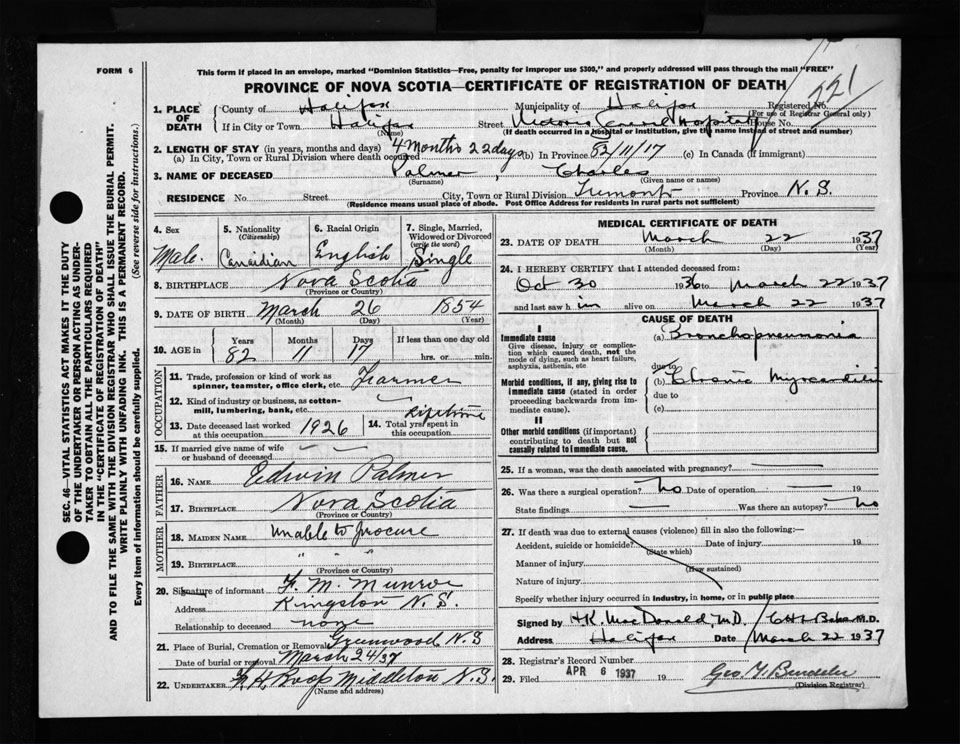 FORM 6
This form if placed in an envelope, marked "Dominion Statistics—Free, penalty for improper use $300," and properly addressed will pass through the mail "FREE"
PROVINCE OF NOVA SCOTIA—CERTIFICATE OF REGISTRATION OF DEATH
521
1. PLACE OF DEATH County of Halifax Municipality of Halifax Registered No.
(For use of Registrar General only)
If in City or Town Halifax (Name) Street Victoria General Hospital House No.
(If death occurred in a hospital or institution, give the name instead of street and number)
2. LENGTH OF STAY (in years, months and days) 4 months 22 days
(a) In City, Town or Rural Division where death occurred (b) In Province 82/11/17 (c) In Canada (if immigrant)
3. NAME OF DECEASED Palmer, Charles
(Surname) (Given name or names)
RESIDENCE No. Street City, Town or Rural Division Tremont Province N.S.
(Residence means usual place of abode. Post Office Address for residents in rural parts not sufficient)
SEC. 46—VITAL STATISTICS ACT MAKES IT THE DUTY
OF THE UNDERTAKER OR PERSON ACTING AS UNDER-
TAKER TO OBTAIN ALL THE PARTICULARS REQUIRED
IN THE "CERTIFICATE OF REGISTRATION OF DEATH"
AND TO FILE THE SAME WITH THE DIVISION REGISTRAR WHO SHALL ISSUE THE BURIAL PERMIT.
WRITE PLAINLY WITH UNFADING INK. THIS IS A PERMANENT RECORD.
Every item of information should be carefully supplied. (See reverse side for instructions.)
4. Sex Male.
5. Nationality (Citizenship) Canadian
6. Racial Origin English
7. Single, Married, Widowed or Divorced (write the word) Single
8. BIRTHPLACE Nova Scotia
(Province or Country)
9. DATE OF BIRTH March 26 1854
(Month) (Day) (Year)
10. AGE in Years 82 Months 11 Days 17 If less than one day old hrs. or min.
OCCUPATION
11. Trade, profession or kind of work as spinner, teamster, office clerk, etc. Farmer
12. Kind of industry or business, as cotton-mill, lumbering, bank, etc.
13. Date deceased last worked at this occupation 1926
14. Total yrs. spent in this occupation Lifetime
15. If married give name of wife or husband of deceased — —
FATHER
16. NAME Edwin Palmer
17. BIRTHPLACE Nova Scotia
(Province or Country)
MOTHER
18. MAIDEN NAME Unable to procure
19. BIRTHPLACE " " "
(Province or Country)
20. Signature of informant F. M. Munroe
Address Kingston N.S.
Relationship to deceased none
21. Place of Burial, Cremation or Removal Greenwood N.S
Date of burial or removal March 24/37
22. UNDERTAKER Middleton N.S.
(Name and address)
MEDICAL CERTIFICATE OF DEATH
23. DATE OF DEATH March 22 1937
(Month) (Day)
24. I HEREBY CERTIFY that I attended deceased from:
Oct 30 1936 to March 22 1937
and last saw him alive on March 22 1937
CAUSE OF DEATH
I
Immediate cause
Give disease, injury or complication which caused death, not the mode of dying, such as heart failure, asphyxia, asthenia, etc
(a) Bronchopneumonia
due to
Morbid conditions, if any, giving rise to immediate cause (stated in order proceeding backwards from immediate cause).
(b) Chronic
due to
(c)
II
Other morbid conditions (if important) contributing to death but not causally related to immediate cause.
25. If a woman, was the death associated with pregnancy? —
26. Was there a surgical operation? no Date of operation — 19
State findings — Was there an autopsy? no
27. If death was due to external causes (violence) fill in also the following:—
Accident, suicide or homicide? Date of injury 19
(State which)
Manner of injury
(How sustained)
Nature of injury
Specify whether injury occurred in industry, in home, or in public place
Signed by H.K. MacDonald, M.D. / M.D.
Address Halifax Date March 22 1937
28. Registrar's Record Number
29. Filed APR 6 1937 19
(Division Registrar)